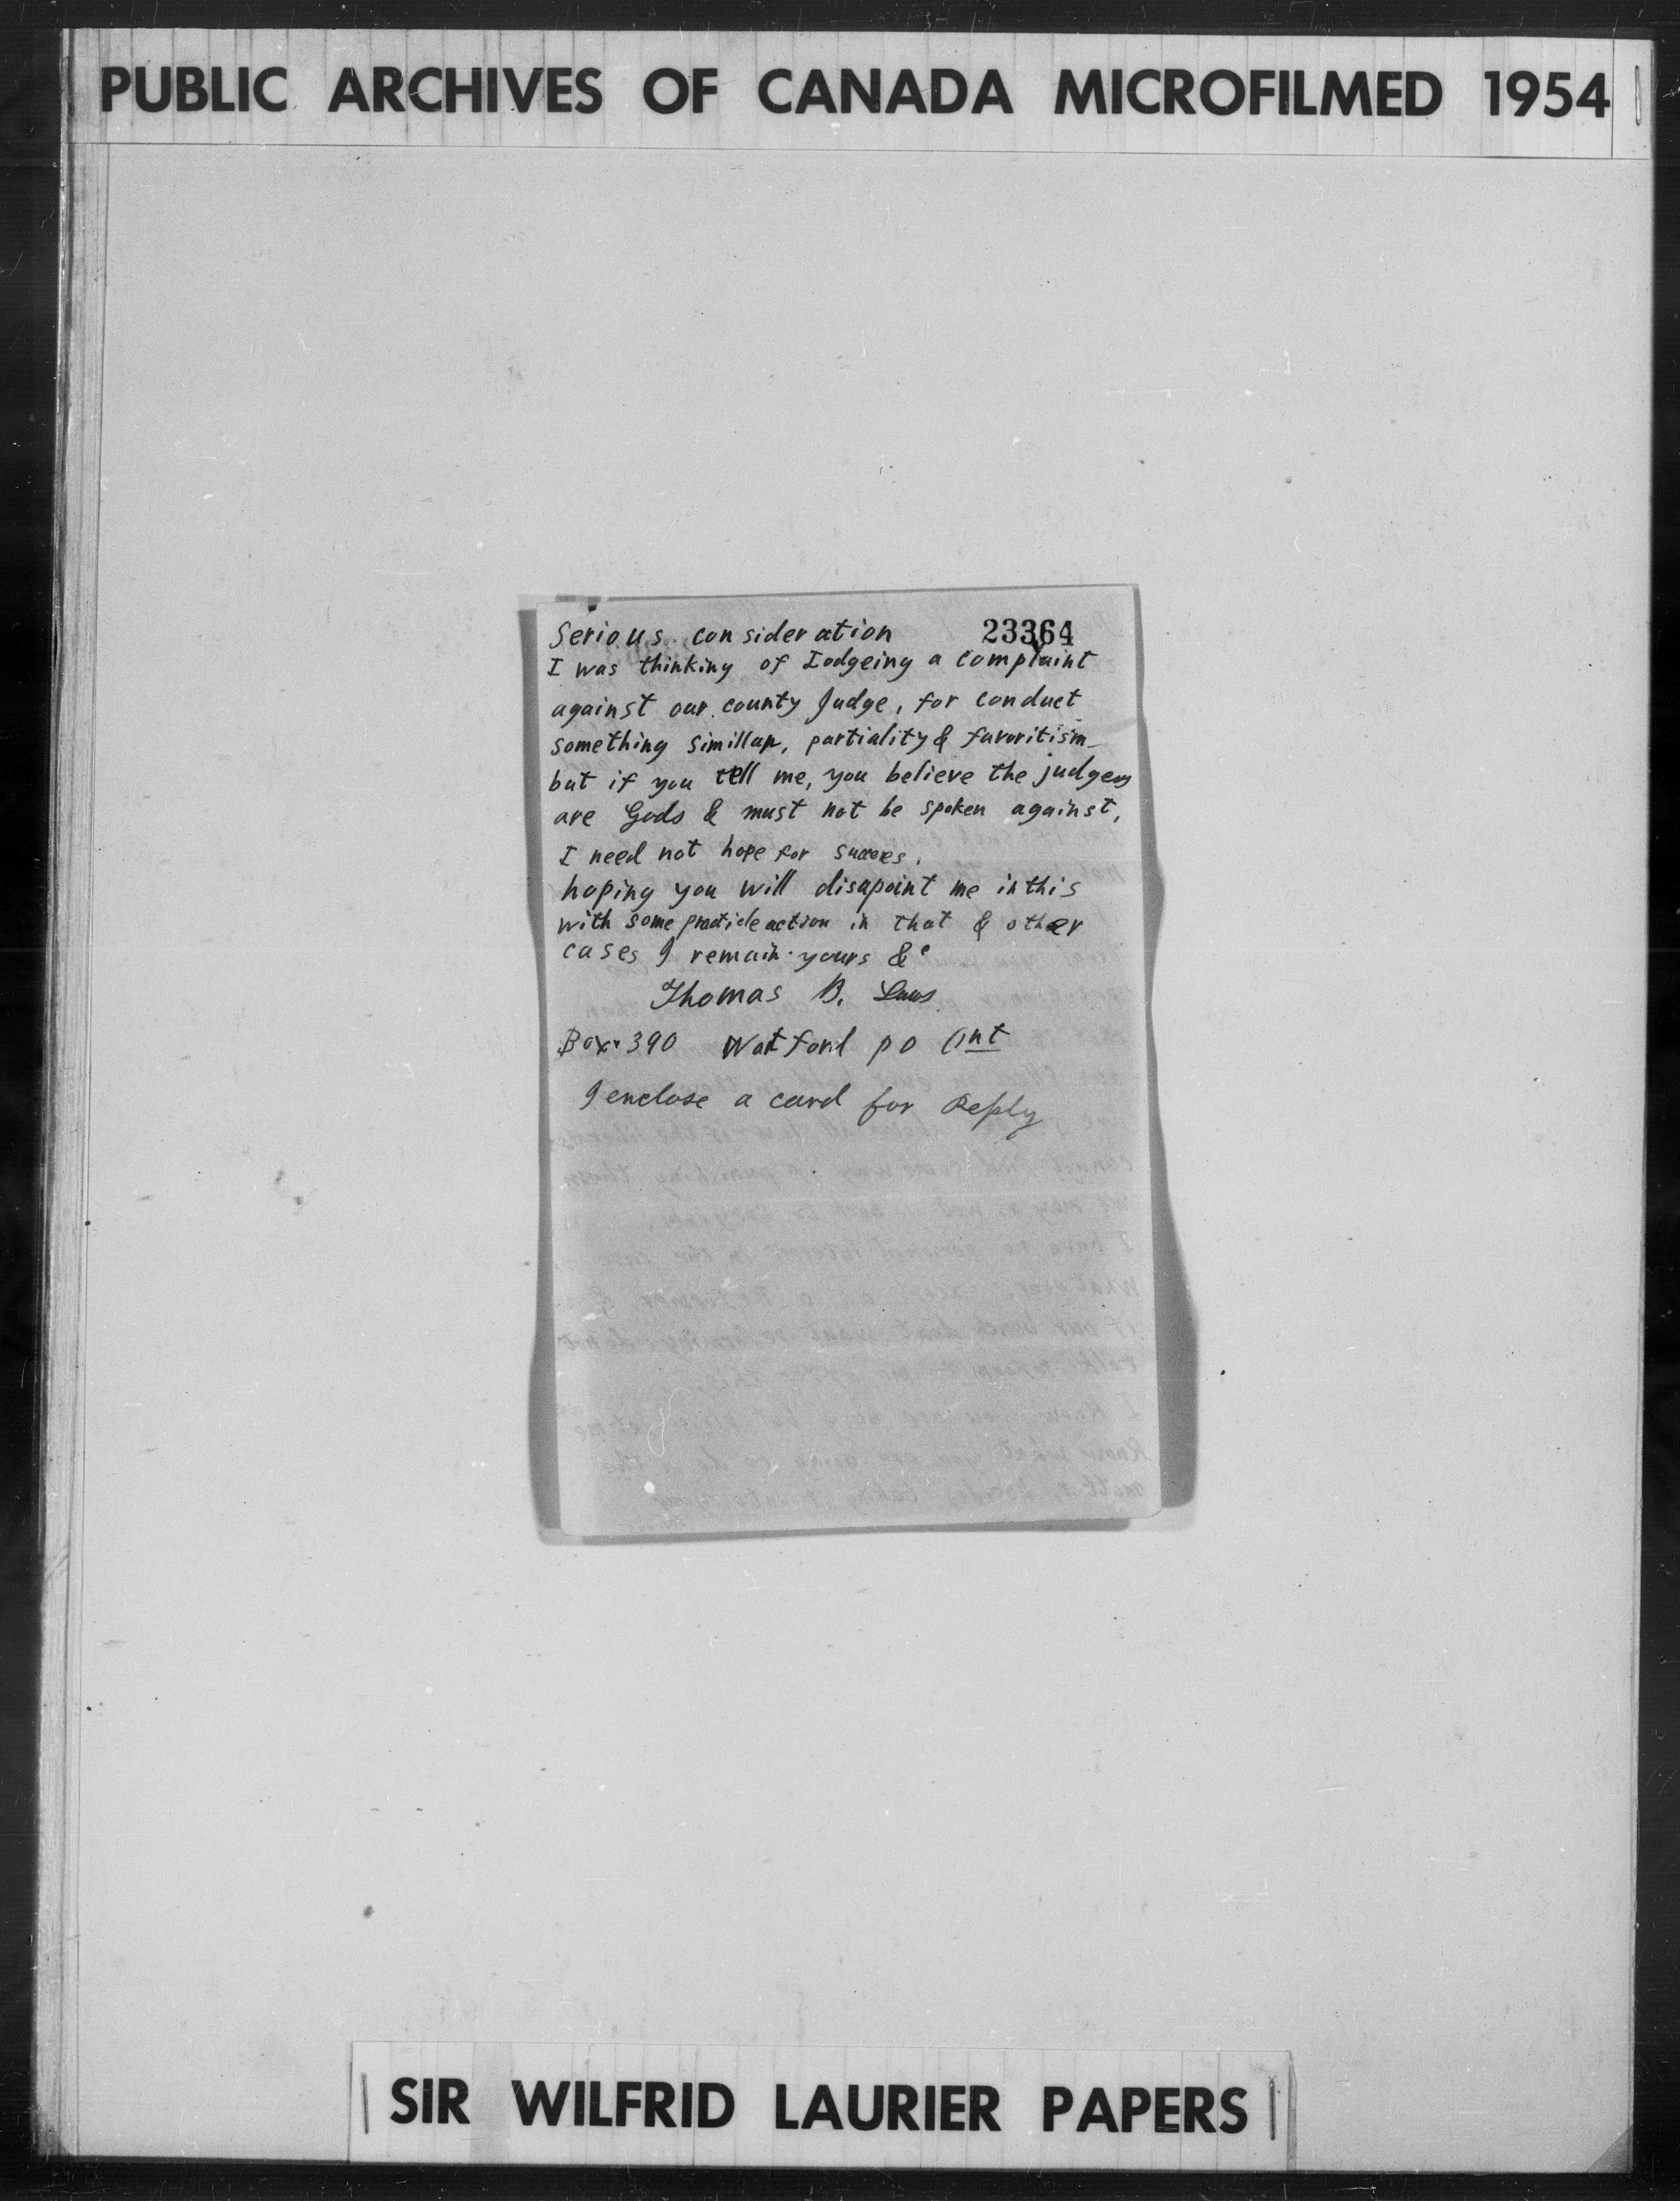 PUBLIC ARCHIVES OF CANADA MICROFILMED 1954
Serious consideration 23364
I was thinking of Lodgeing a complaint
against our county Judge, for conduct
something simillar, partiality & favoritism
but if you tell me, you believe the judges
are Gods & must not be spoken against,
I need not hope for success.
hoping you will disapoint me in this
with some practicle action in that & other
cases I remain yours &c
Thomas B. Laws
Box 390 Watford P O Ont
I enclose a card for Reply
SIR WILFRID LAURIER PAPERS